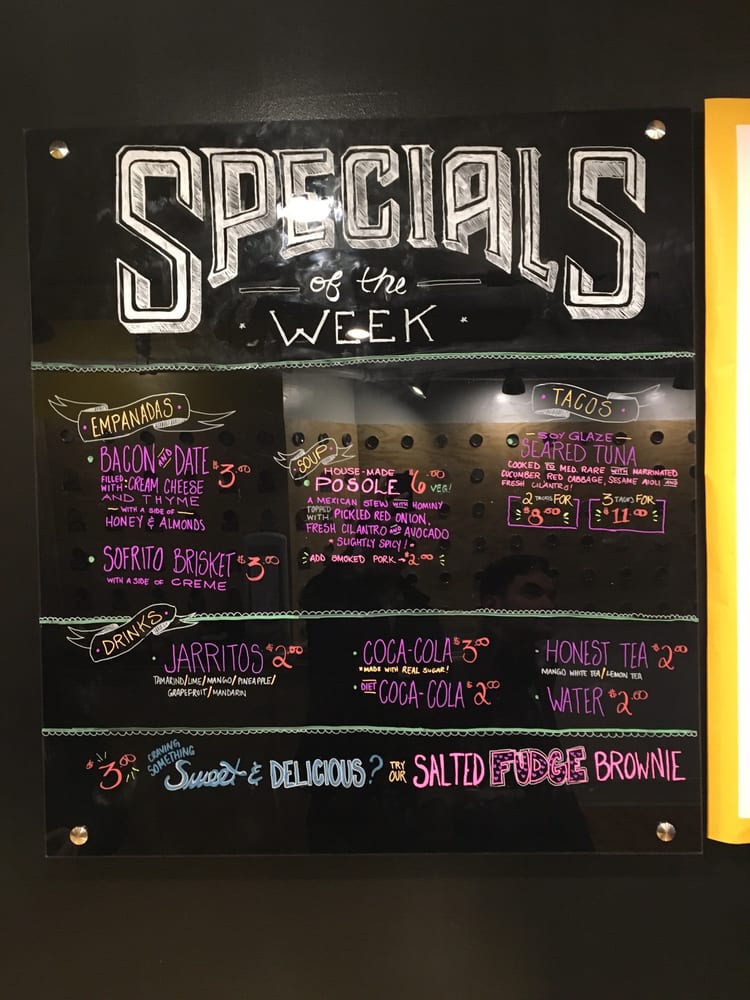 SPECIALS
of the
WEEK
EMPANADAS
BACON AND DATE $3.00
FILLED WITH: CREAM CHEESE
AND THYME
WITH A SIDE OF
HONEY & ALMONDS
SOFRITO BRISKET $3.00
WITH A SIDE OF CREME
SOUP
HOUSE-MADE
POSOLE $6.00 VEG!
A MEXICAN STEW WITH HOMINY
TOPPED WITH PICKLED RED ONION,
FRESH CILANTRO AND AVOCADO
*SLIGHTLY SPICY!*
ADD SMOKED PORK → $2.00
TACOS
SOY GLAZE
SEARED TUNA
COOKED TO MED. RARE WITH MARRINATED
CUCUMBER RED CABBAGE, SESAME AIOLI AND
FRESH CILANTRO!
2 TACOS FOR
$8.50
3 TACOS FOR
$11.00
DRINKS
JARRITOS $2.00
TAMARIND/LIME/MANGO/PINEAPPLE/
GRAPEFRUIT/MANDARIN
COCA-COLA $3.00
*MADE WITH REAL SUGAR!
DIET COCA-COLA $2.00
HONEST TEA $2.00
MANGO WHITE TEA/LEMON TEA
WATER $2.00
$3.00 CRAVING SOMETHING Sweet & DELICIOUS? TRY OUR SALTED FUDGE BROWNIE